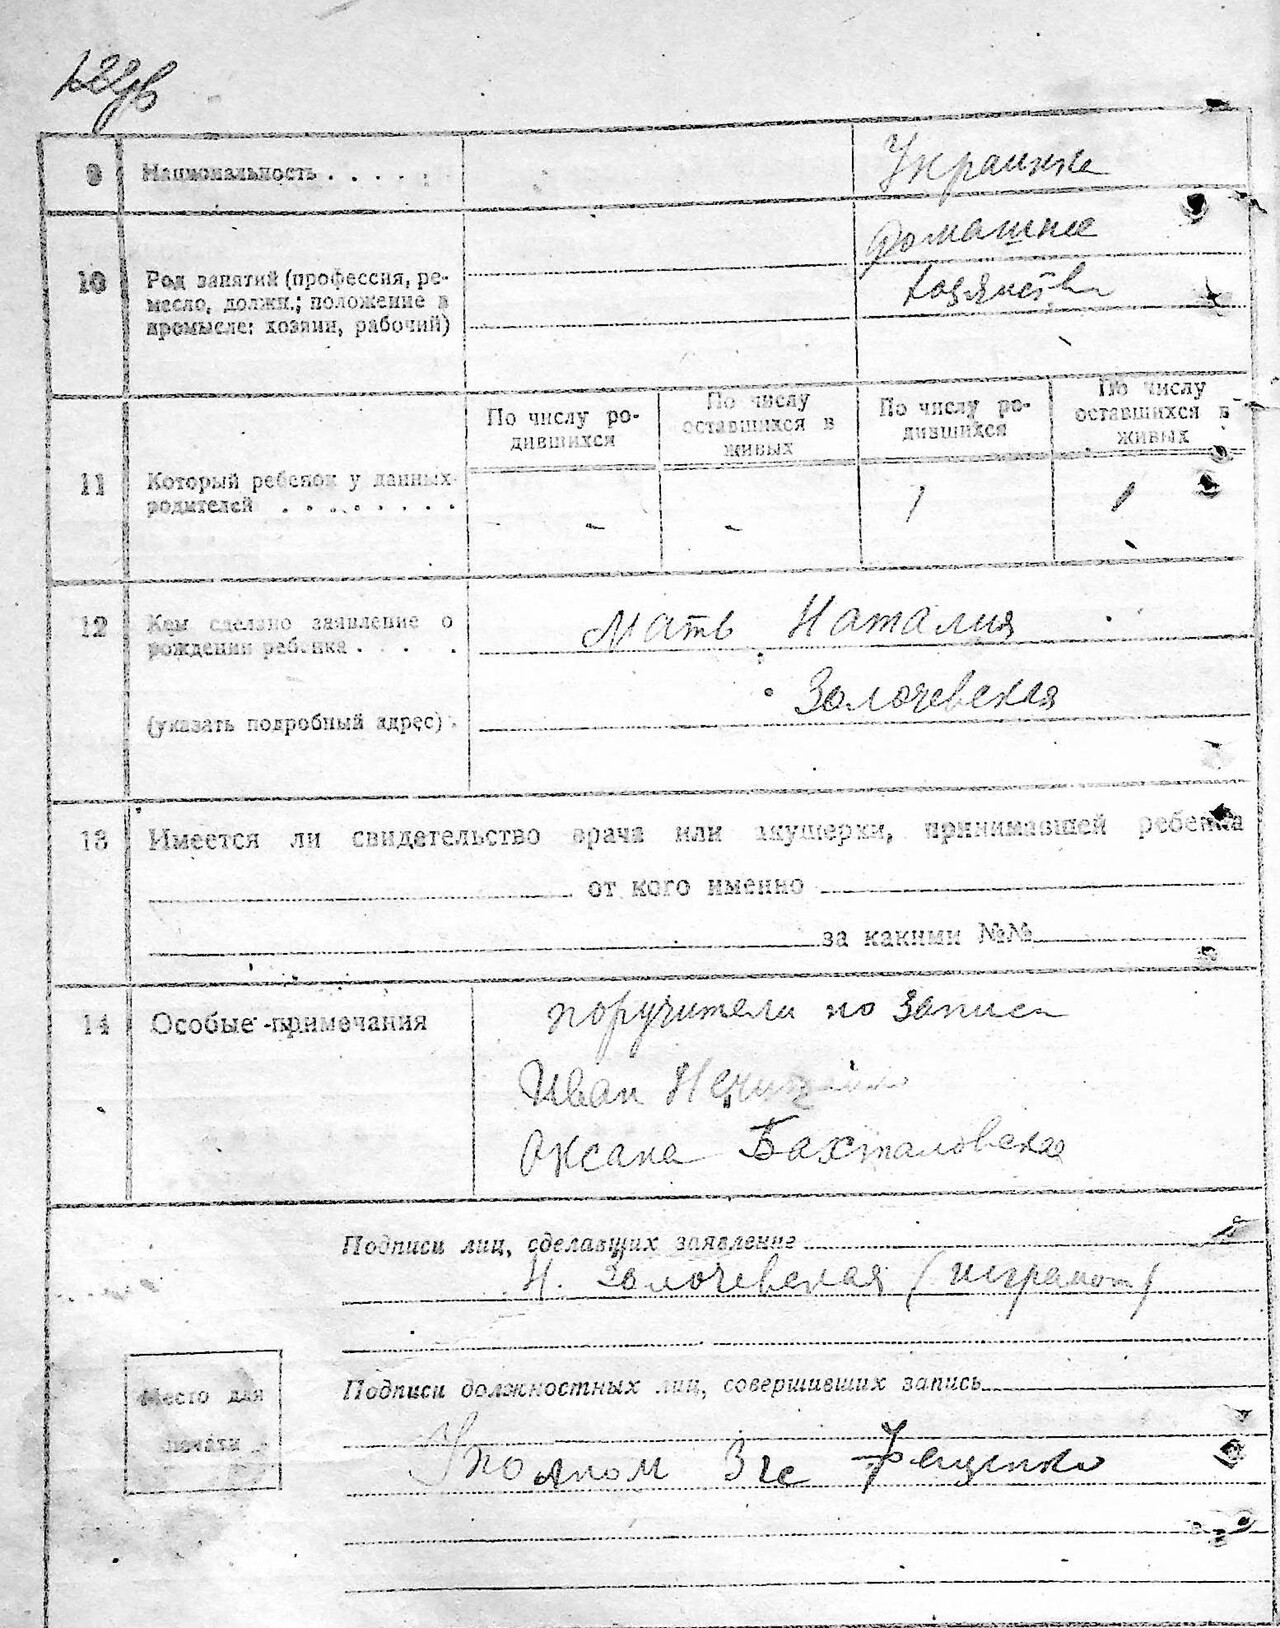 9 Национальность . . . . . Украинка
10 Род занятий (профессия, ре-
месло, должн.; положение в
промысле: хозяин, рабочий)
Домашнее
хозяйство
По числу ро-
дившихся
По числу
оставшихся в
живых
По числу ро-
дившихся
По числу
оставшихся в
живых
11 Который ребенок у данных
родителей . . . . . . . .
- - 1 1
12 Кем сделано заявление о
рождении ребенка . . . .
(указать подробный адрес) .
Мать Наталия
Золочевская
13 Имеется ли свидетельство врача или акушерки, принимавшей ребенка
от кого именно
за какими №№
14 Особые примечания
поручители по записи
Иван
Оксана Бахталовская
Подписи лиц, сделавших заявление
Н. Золочевская (неграмот)
Подписи должностных лиц, совершивших запись
Место для
печати
Фещенко